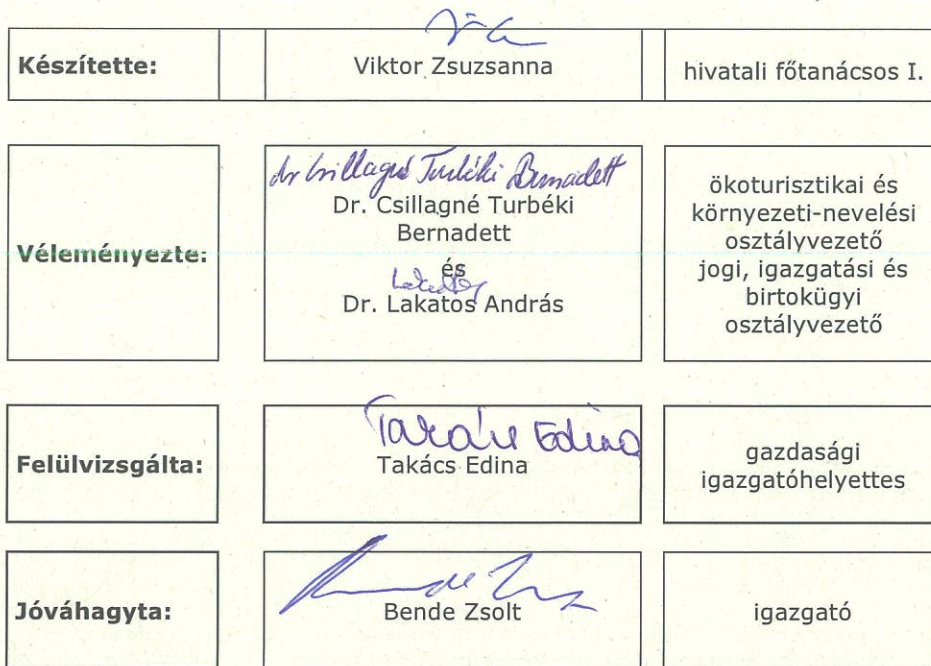 Készítette:
Viktor Zsuzsanna
hivatali főtanácsos I.
Véleményezte:
dr Csillagné Turbéki Bernadett
Dr. Csillagné Turbéki
Bernadett
és
Dr. Lakatos András
ökoturisztikai és
környezeti-nevelési
osztályvezető
jogi, igazgatási és
birtokügyi
osztályvezető
Felülvizsgálta:
Takács Edina
Takács Edina
gazdasági
igazgatóhelyettes
Jóváhagyta:
Bende Zsolt
igazgató